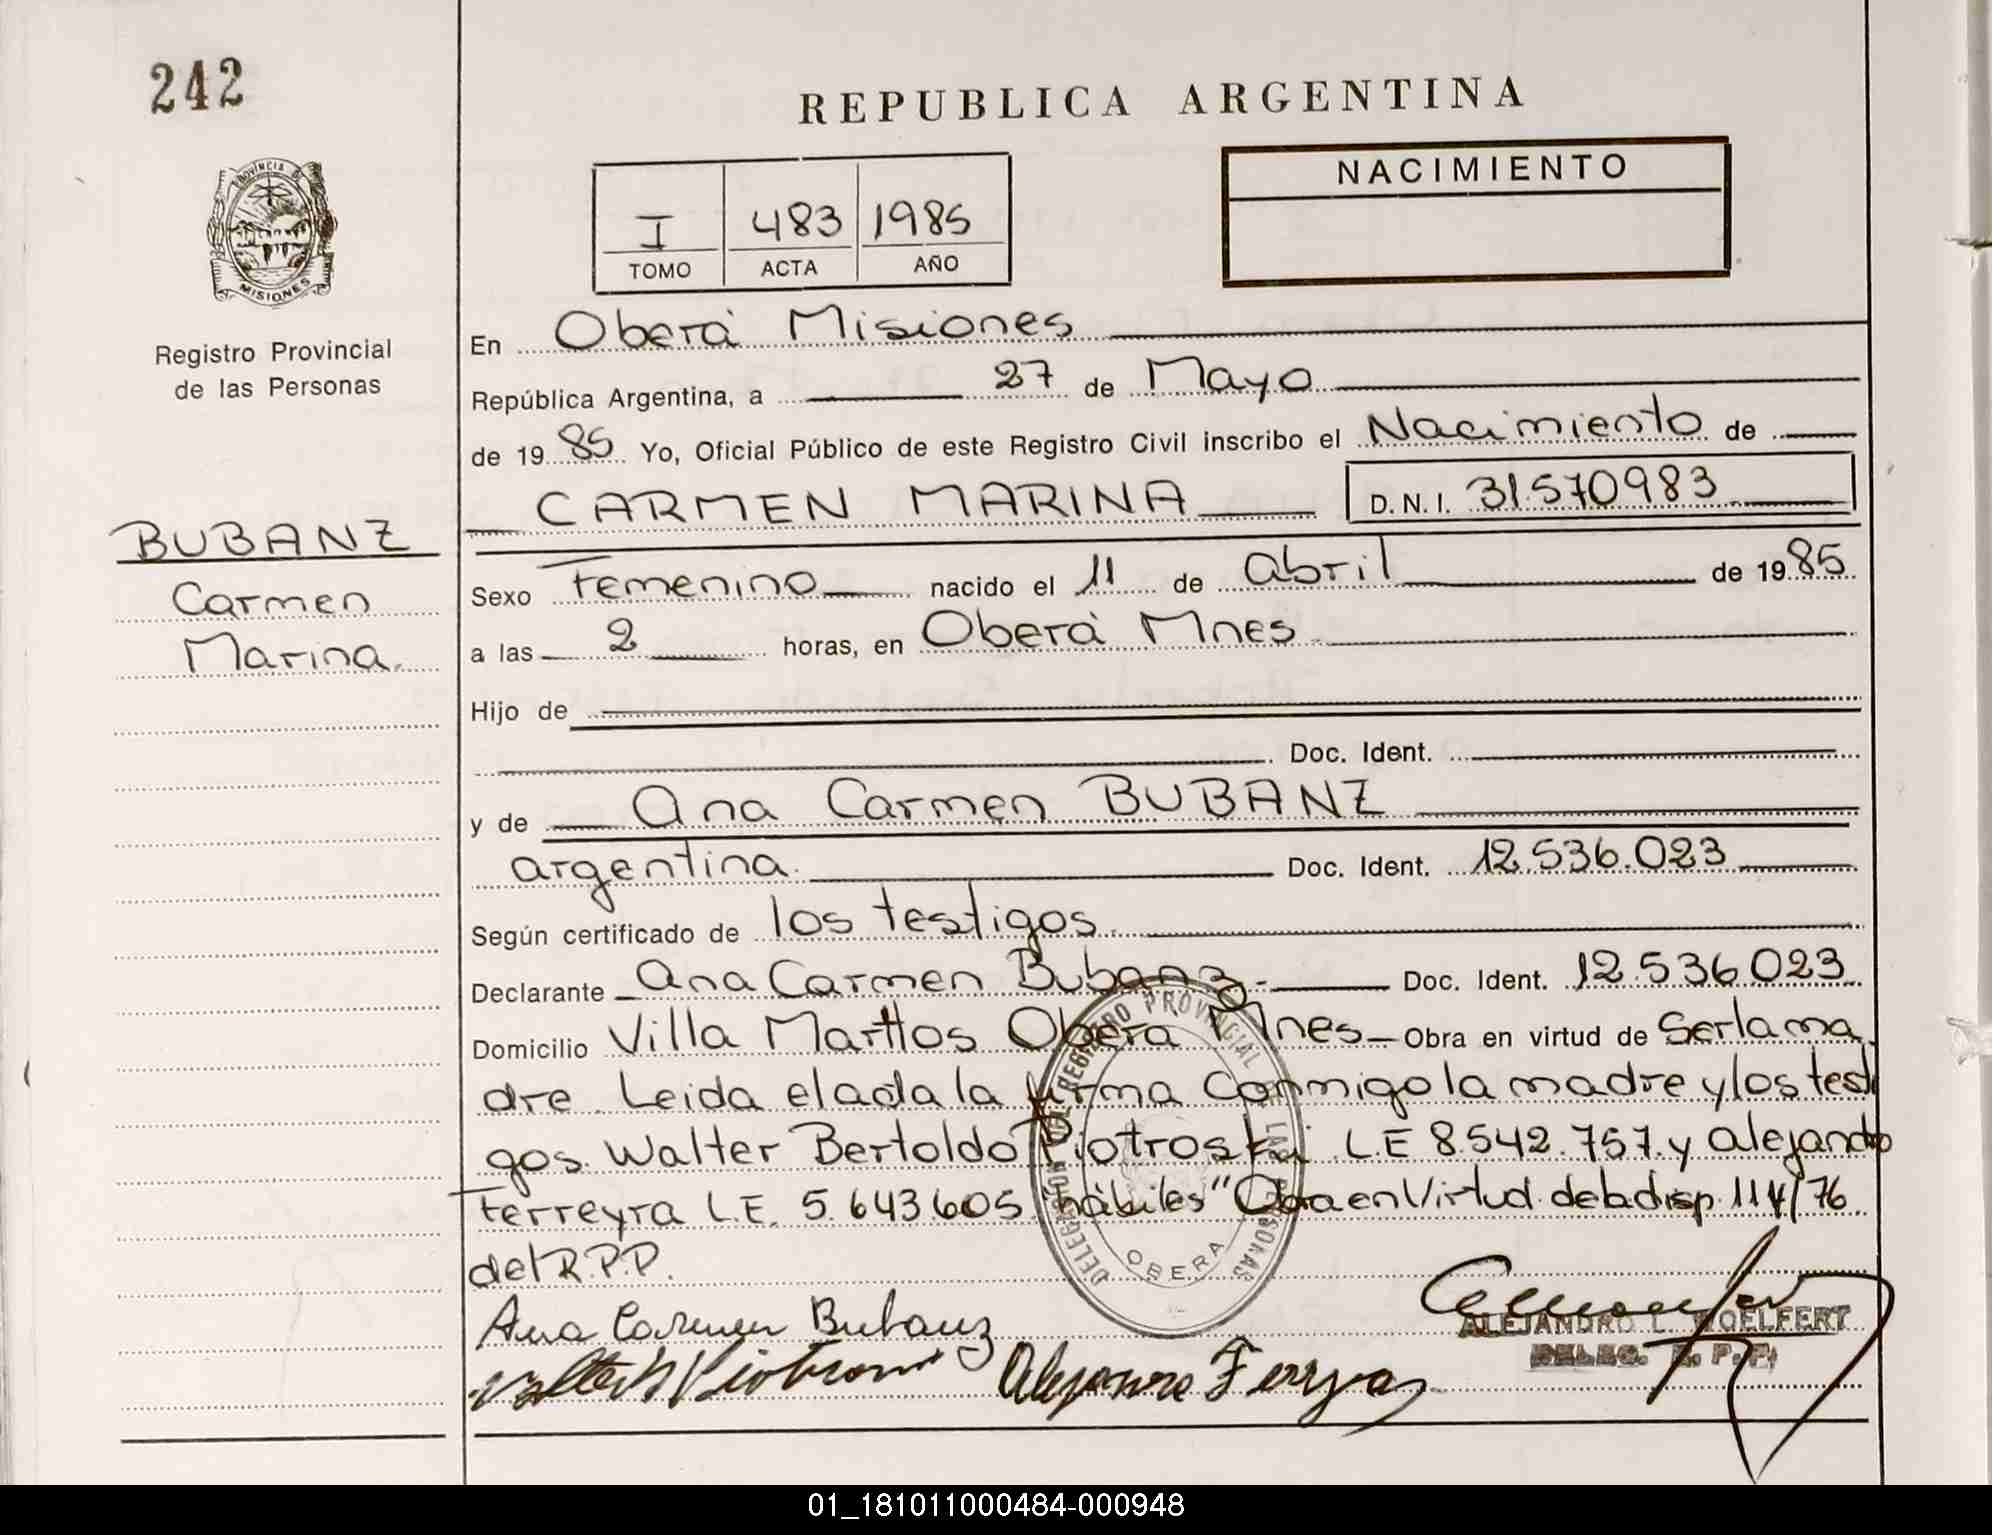 242
REPUBLICA ARGENTINA
NACIMIENTO
I 483 1985
TOMO ACTA AÑO
PROVINCIA DE
MISIONES
Registro Provincial
de las Personas
BUBANZ
Carmen
Marina.
En Oberá Misiones
República Argentina, a 27 de Mayo
de 1985 Yo, Oficial Público de este Registro Civil inscribo el Nacimiento de
CARMEN MARINA D.N.I. 31.570983
Sexo Femenino nacido el 11 de abril de 1985
a las 2 horas, en Oberá Mnes
Hijo de
Doc. Ident.
y de Ana Carmen BUBANZ
argentina. Doc. Ident. 12.536.023
Según certificado de los testigos
Declarante Ana Carmen Bubanz.- Doc. Ident. 12.536.023
Domicilio Villa Martos Oberá Mnes Obra en virtud de Ser la ma
dre. Leida el acta la firma conmigo la madre y los testi
gos. Walter Bertoldo Piotroski L.E 8.542.757. y Alejandro
Ferreyra L.E. 5.643.605 "hábiles" Obra en Virtud de la disp. 114/76
del R.P.P.
DELEGACION DEL REGISTRO PROVINCIAL DE LAS PERSONAS
OBERA
Ana Carmen Bubanz
ALEJANDRO L. WOELFERT
DELEG. R. P. P.
01_181011000484-000948